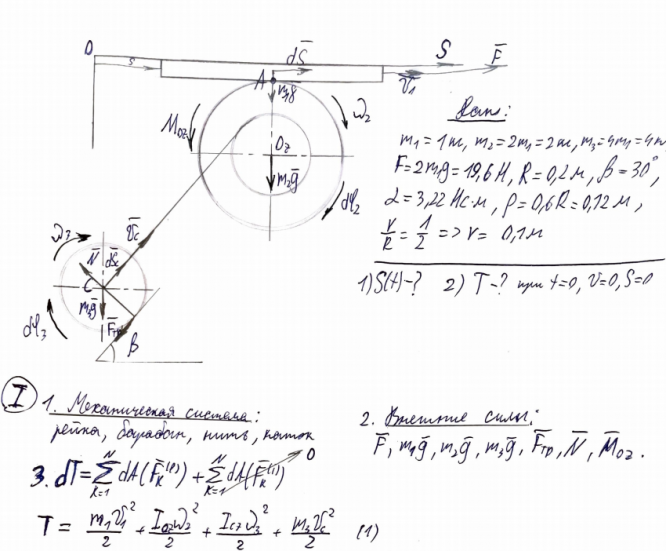 O
S
dS̄
S
F̄
A
m₁ḡ
v̄₁
M_oz
ω₂
O₂
m₂ḡ
dφ₂
v̄c
ω₃
N̄
dS̄c
C
m₃ḡ
F̄тр
β
dφ₃
Дано:
m₁ = 1m, m₂ = 2m₁ = 2m, m₃ = 4m₁ = 4m
F = 2m₁g = 19,6 Н, R = 0,2 м, β = 30°,
α = 3,22 Нс·м, ρ = 0,6R = 0,12 м,
r/R = 1/2 => r = 0,1 м
1) S(t) - ? 2) T - ? при t=0, v=0, S=0
I 1. Механическая система:
рейка, барабан, нить, каток
2. Внешние силы:
F̄, m₁ḡ, m₂ḡ, m₃ḡ, F̄тр, N̄, M̄oz.
3. dT = Σ(K=1..N) dA(F̄ₖ⁽ᵉ⁾) + Σ(K=1..N) dA(F̄ₖ⁽ⁱ⁾) 0
T = m₁v₁²/2 + I_oz ω₂²/2 + I_cz ω₃²/2 + m₃v_c²/2 (1)